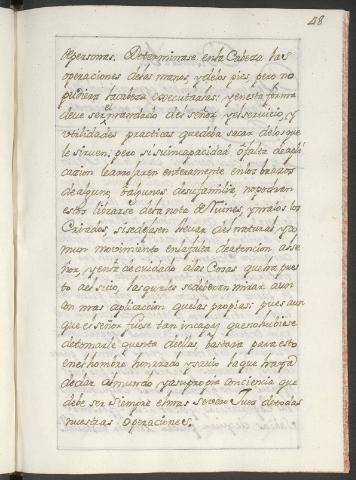 48
depersonas. Determinase enla Cabeza las
operaciones delas manos, ydelos pies, pero no
pudiera lacabeza executarlas: yenesta forma
deve ser el mandado del señor, yel servicio, y
utilidades practicas quedeba sacar delos que
le sirven, pero si suincapacidad ô falta de apli
cazion learrojaren enteramente enlos brazos
de alguno, ôalgunos desufamilia, nopodran
estos librarse dela nota de Ruines, ymalos los
Criados, sisedejasen llevar del natural, yco
mun movimiento enlafalta deatencion alSe
ñor, yenla decuidado alas Cosas queha pues
to alsuio, lasquales sedeberan mirar aun
con mas aplicacion quelas propias: pues aun
que el Señor fuese tan incapaz quenohubiese
detomarle quenta deellas bastara para esto
enel hombre honrrado ysavio laque haya
dedar almundo, yasupropia conciencia que
debe ser siempre elmas severo Juez detodas
nuestras operaciones.